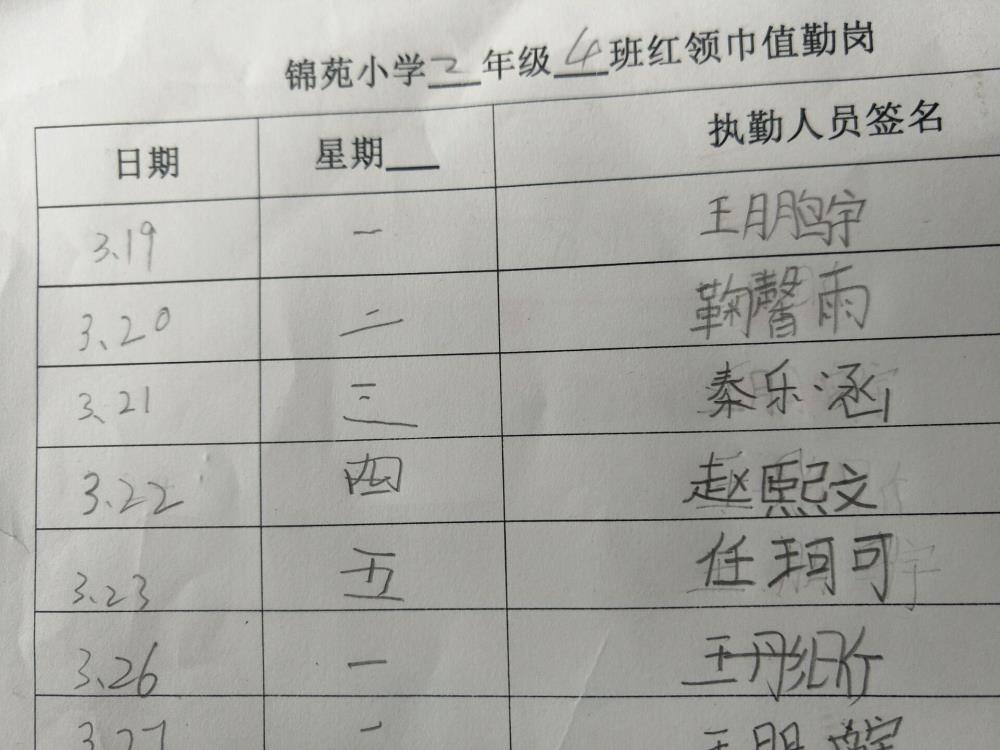 锦苑小学二年级4班红领巾值勤岗
日期 星期 执勤人员签名
3.19 一 王鹏宇
3.20 二 鞠馨雨
3.21 三 秦乐涵
3.22 四 赵熙文
3.23 五 任珂可
3.26 一 王丹
3.27 二 王